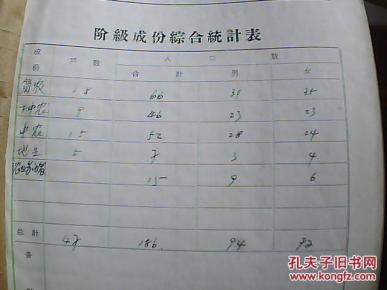 阶級成份綜合統計表
成份 户数 人口數
合計 男 女
贫农 18 66 31 35
下中农 9 46 23 23
中农 15 52 28 24
地主 5 7 3 4
15 9 6
总計 47 186 94 92
备
孔夫子旧书网